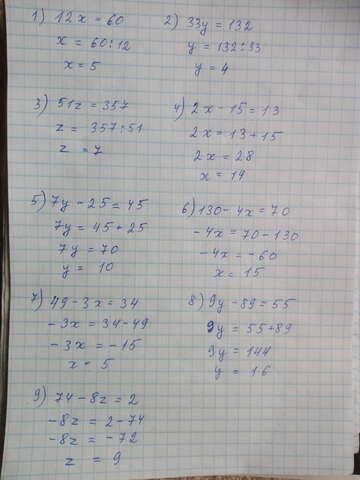 1) 12x = 60
x = 60:12
x = 5
2) 33y = 132
y = 132:33
y = 4
3) 51z = 357
z = 357:51
z = 7
4) 2x - 15 = 13
2x = 13 + 15
2x = 28
x = 14
5) 7y - 25 = 45
7y = 45 + 25
7y = 70
y = 10
6) 130 - 4x = 70
-4x = 70 - 130
-4x = -60
x = 15
7) 49 - 3x = 34
-3x = 34 - 49
-3x = -15
x = 5
8) 9y - 89 = 55
9y = 55 + 89
9y = 144
y = 16
9) 74 - 8z = 2
-8z = 2 - 74
-8z = -72
z = 9